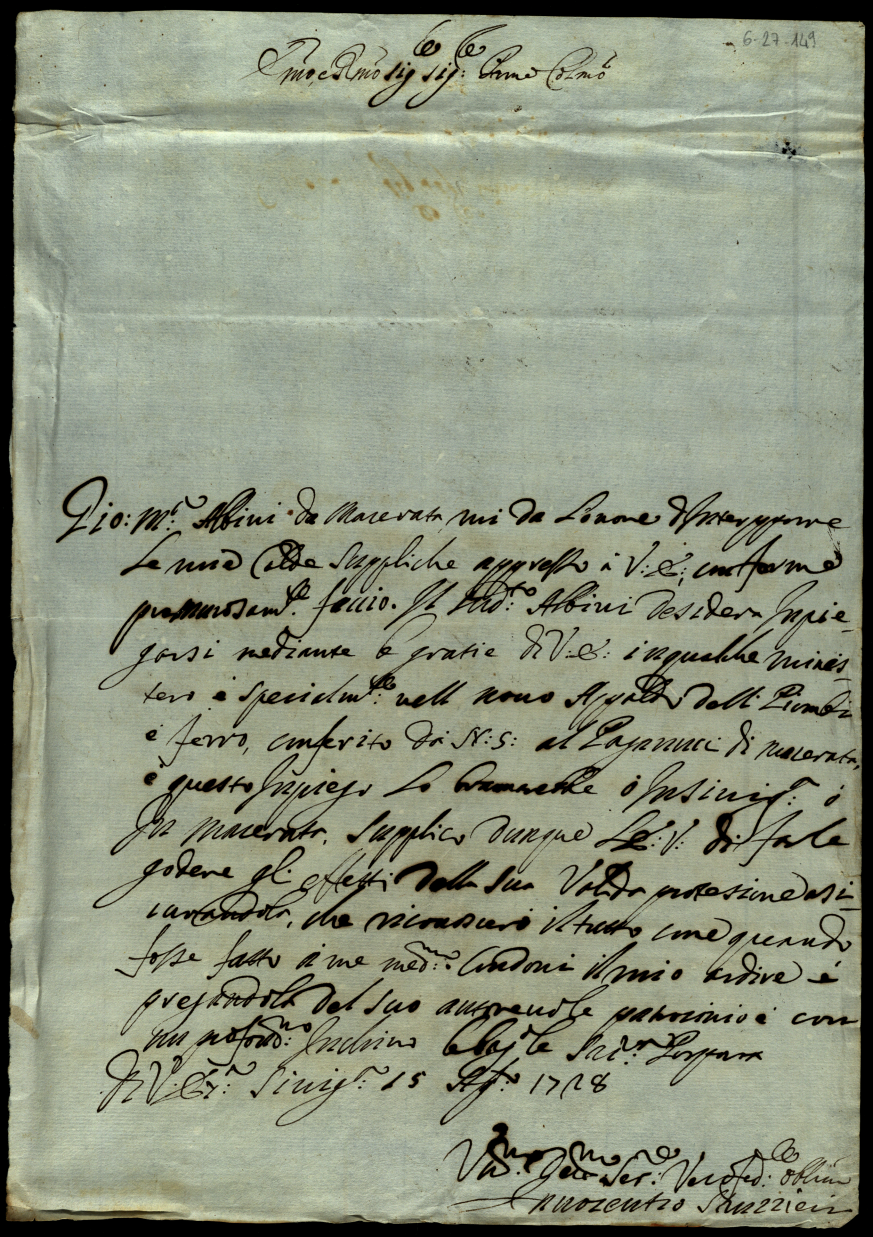 6-27-149
Em̃o e Rmo Sig.r Sig.r: Prne Colmo
Gio: M.a Albini da Macerata mi da L'onore d'Interpporre
Le mie calde Suppliche appresso à V: E:, conforme
premurosam.te faccio. Il sud.to Albini desidera Inpie-
garsi mediante le gratie di V: E: in qualche minis-
tero è specialm.te nell novo Appalto delli Piombi
è ferro, conferito da N: S: al Paganucci di macerata,
è questo Inpiego Lo bramarebbe ò In Sinig.a: ò
In Macerata. Supplico dunque L'E: V: di farle
godere gl' effetti della sua Valida protezione assi-
curandola, che riconoscerò il tutto come quando
fosse fatto à me med.mo: Condoni il mio ardire è
pregandola del suo autorevole patrocinio è con
un profond.mo: Inchino le bagio la Sac.ra Porpora
Di V: E: Sinig.a: 15 Ag.to 1728
Um.mo Dev.mo Ser.re Vero fed: obblig
Innocentio